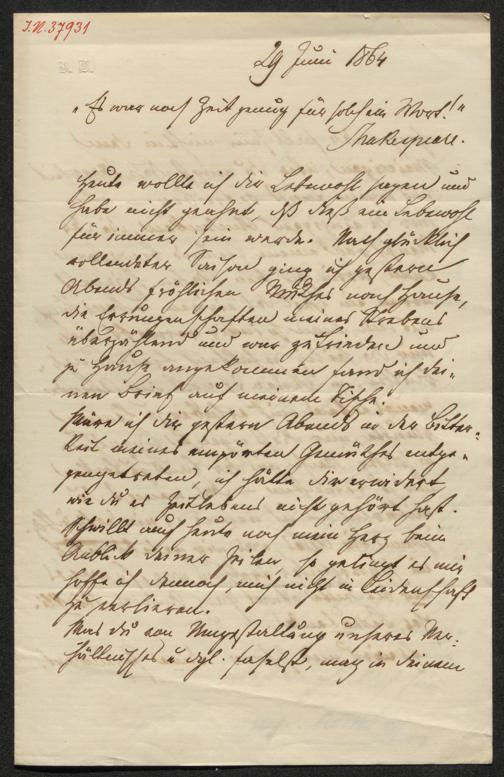 J.N. 37931
29 Juni 1864
"Es war noch Zeit genug für solch ein Wort!"
Shakespeare.
Heute wollte ich dir Lebewohl sagen und
habe nicht geahnt, dß dieß ein Lebewohl
für immer sein werde. Nach glücklich
vollendeter Saison ging ich gestern
Abends fröhlichen Muthes nach Hause,
die Errungenschaften meines Strebens
überzählend und war zufrieden und
zu Hause angekommen fand ich dei-
nen Brief auf meinem Tische.
Wäre ich dir gestern Abends in der Bitter-
keit meines empörten Gemüthes entge-
gengetreten, ich hätte dir erwidert
wie du es zeitlebens nicht gehört hast.
Schwillt auch heute noch mein Herz beim
Anblick deiner Zeilen, so gelingt es mir
hoffe ich dennoch, mich nicht in Leidenschaft
zu verlieren.
Was du von Umgestaltung unseres Ver-
hältnisses u dgl. faselst, mag in deinem